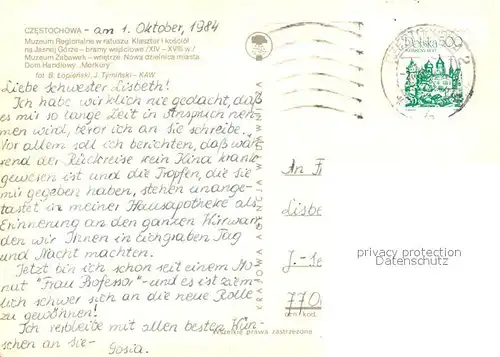 CZĘSTOCHOWA - am 1. Oktober, 1984
Muzeum Regionalne w ratuszu. Klasztor i kościół
na Jasnej Górze — bramy wejściowe /XIV - XVIII w./
Muzeum Zabawek — wnętrze. Nowa dzielnica miasta.
Dom Handlowy „Merkury"
fot. B. Łopieński, J. Tymiński - KAW
Polska
Liebe Schwester Lisbeth!
Ich habe wirklich nie gedacht, daß
es mir so lange Zeit in Anspruch neh-
men wird, bevor ich an Sie schreibe.
Vor allem soll ich berichten, daß wäh-
rend der Rückreise kein Kind krank
gewesen ist und die Tropfen, die Sie
mir gegeben haben, stehen unange-
tastet in meiner Hausapotheke als
Erinnerung an den ganzen Wirrwarr,
den wir Ihnen in Eichgraben Tag
und Nacht machten.
Jetzt bin ich schon seit einem Mo-
nat "Frau Professor" - und es ist ziem-
lich schwer sich an die neue Rolle
zu gewöhnen!
Ich verbleibe mit allen besten Wün-
schen an Sie -
Gosia.
KRAJOWA AGENCJA WYDAWNICZA
An F
Lisbe
J.-
770
privacy protection
Datenschutz
Wszelkie prawa zastrzeżone